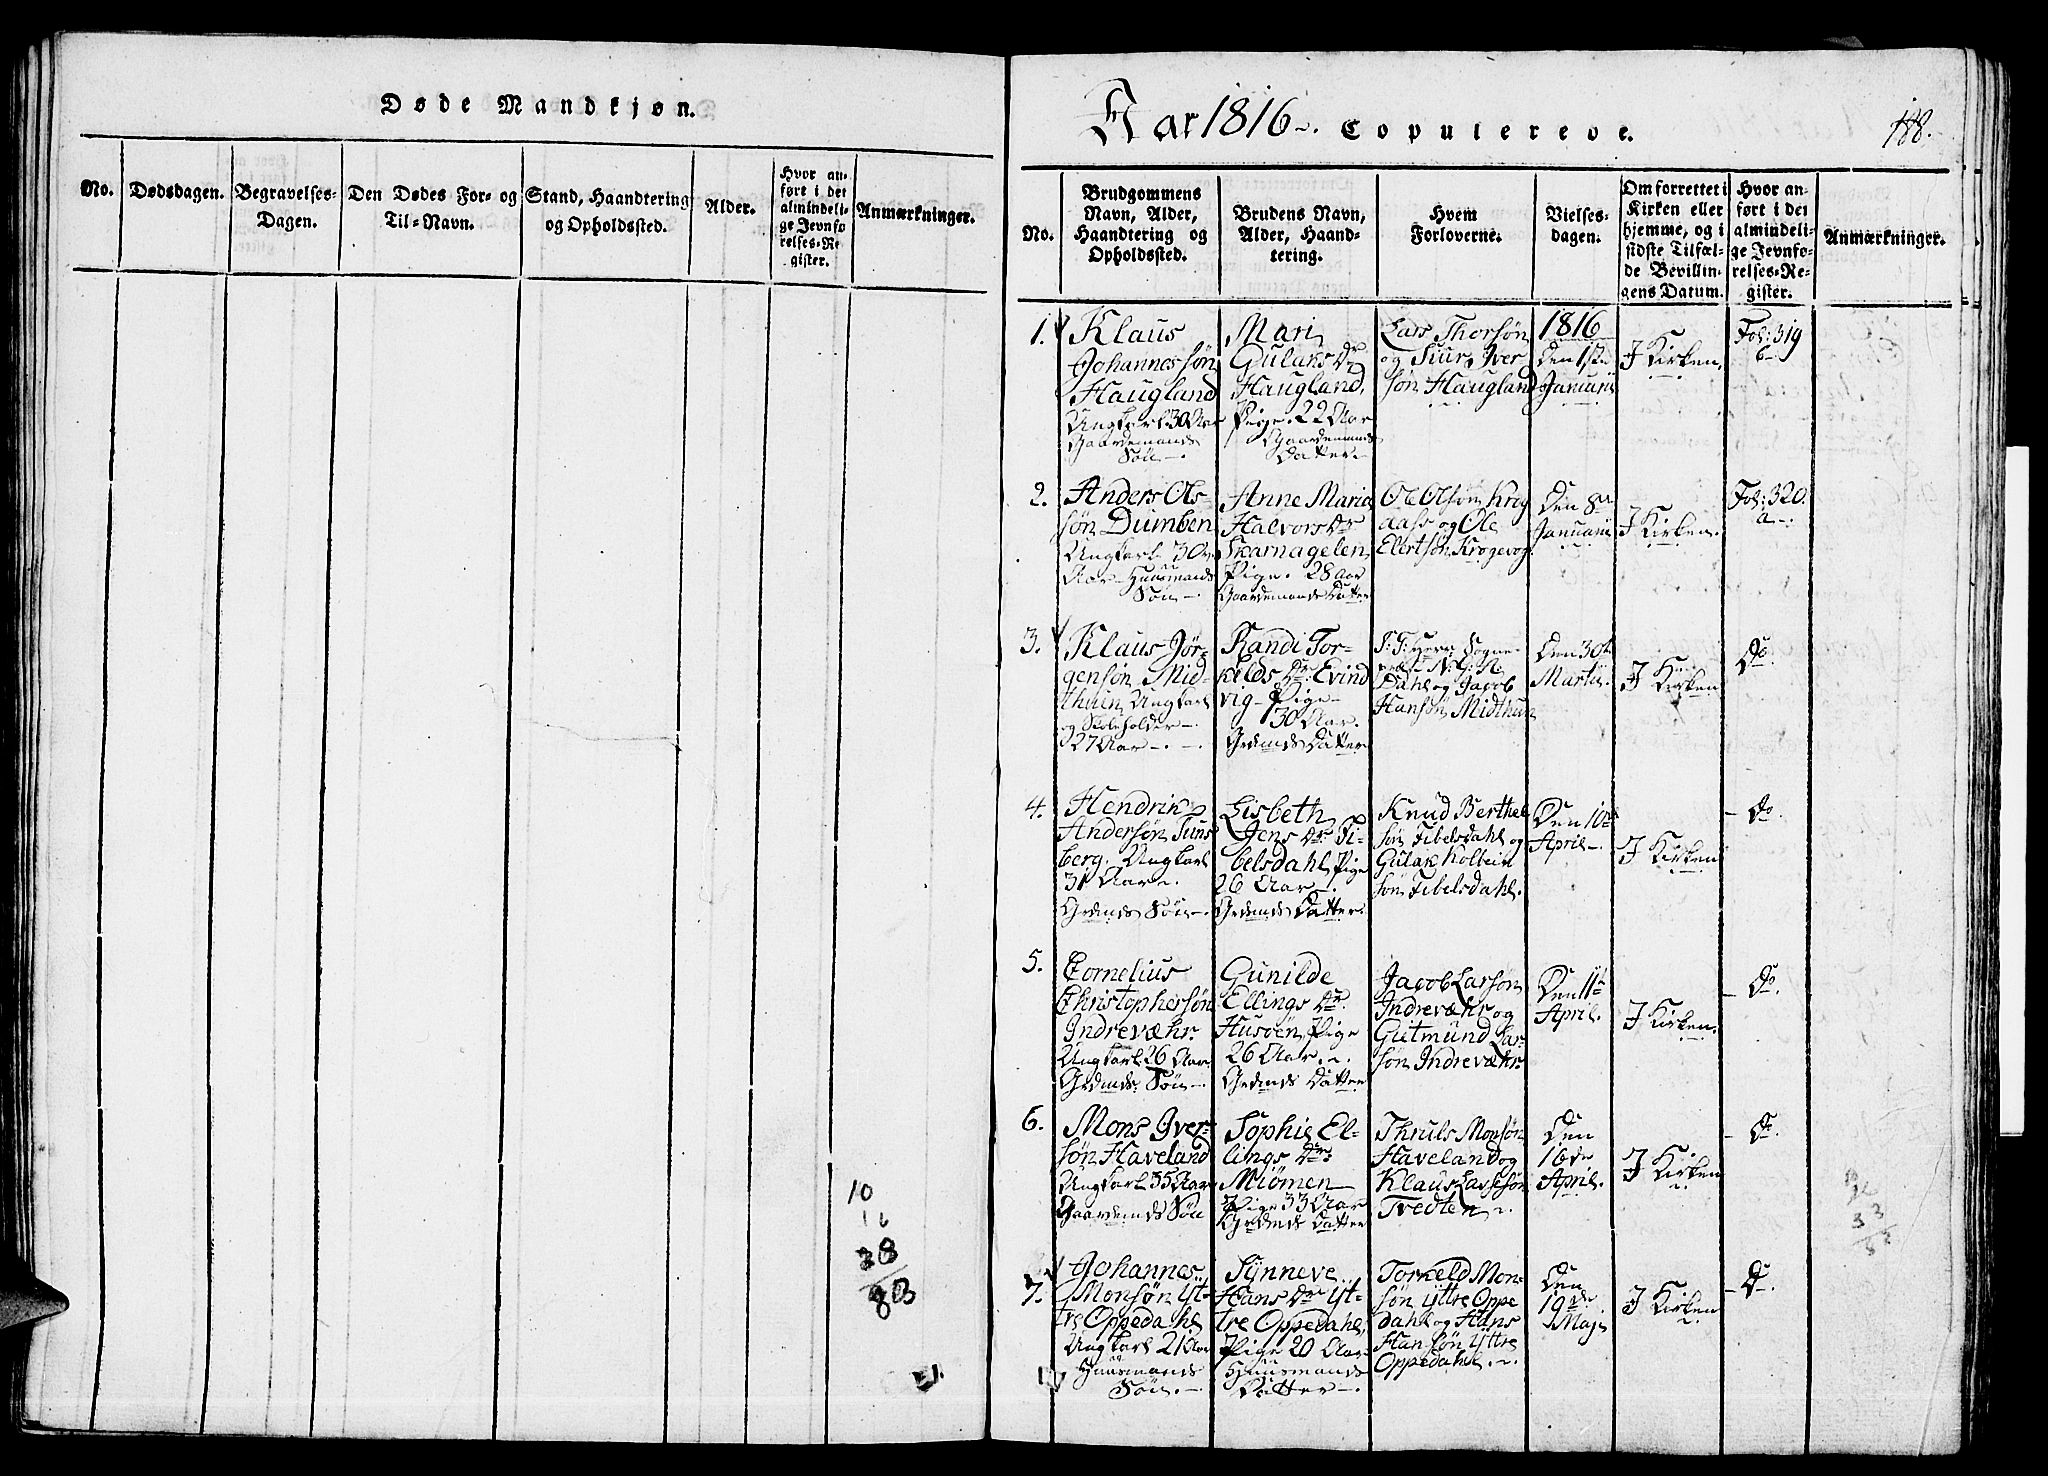 Døde Mandkjøn.
No.
Dødsdagen.
Begravelses-
Dagen.
Den Dødes For- og
Til-Navn.
Stand, Haandtering
og Opholdssted.
Alder.
Hvor an-
ført i det
almindeli-
ge Jevnfø
relses-Re
gister.
Anmærkninger.
10
16
38
83
Aar 1816 Copulerede.
188.
No.
Brudgommens
Navn, Alder,
Haandtering og
Opholdssted.
Brudens Navn,
Alder, Haand-
tering.
Hvem
Forloverne.
Vielses-
dagen.
Om forrettet i
Kirken eller
hjemme, og i
sidste Tilfæl-
de Bevillin-
gens Datum.
Hvor an-
ført i det
almindeli-
ge Jevnfø-
relses-Re-
gister.
Anmærkninger.
1.
Klaus
Johannessøn
Haugland
Ungkarl 30 Aar
Gaardemands
Søn
Mari
Gulaks Dr
Haugland,
Pige. 22 Aar
Gaardemands
Datter
Lars Thorsøn
og Siur Iver
søn Haugland
1816
Den 1ste
Januarii
I Kirken.
Fol: 319
b
2.
Anders Ols-
søn Dumben
Ungkarl 30
Aar Huusmands
Søn
Anne Maria
Halvors Dr
Skarnagelen,
Pige. 28 Aar
Gaardemands Datter
Ole Olsøn Krog
aass og Ole
Elertsøn Krogevog.
Den 8de
Januarii
I Kirken.
Fol: 320.
a
3.
Klaus Jør-
gensøn Mid-
thuen, Ungkarl
og Skoleholder
27 Aar
Randi Tor-
kelds Dr: Evind
vig Pige
30 Aar.
Grdmds Datter
S: T: Herr Sogne-
præst N: G: N:
Dahl og Jacob
Hansøn Midthun
Den 30te
Martii.
I Kirken
Do.
4.
Hendrik
Andersøn Tuns
berg. Ungkarl
31 Aar
Grdmds Søn
Lisbeth
Jens Dr: Ti-
belsdahl, Pige
26 Aar
Grdmds Datter.
Knud Berthel
søn Tibelsdahl og
Gulak Kolbein
søn Tibelsdahl.
Den 10de
April
I Kirken
Do.
5.
Cornelius
Christophersøn
Indrevæhr.
Ungkarl 26 Aar
Grdmds: Søn
Gunilde
Ellings Dr:
Husøen, Pige
26 Aar.
Grdmds Datter
Jacob Larsøn
Indrevæhr og
Gutmund Lar-
søn Indrevæhr.
Den 11te
April.
I Kirken.
Do.
6.
Mons Iver-
søn Haveland
Ungkarl 35 Aar
Gaardemds Søn
Sophie El-
lings Dr:
Miömen
Pige 33 Aar
Grdmds Datter
Thruls Monsøn
Haveland og
Klaus Lassesøn
Tvedten
Den
16de
April.
I Kirken
Do.
7.
Johannes
Monsøn Yt-
tre Oppedahl
Ungkarl 21 Aar
Huusmands
Søn.
Synneve
Hans Dr Yt-
tre Oppedahl,
Pige 20 Aar
Huusmands
Datter
Torkeld Mon-
søn Yttre Oppe
dahl og Hans
Hansøn Yttre
Oppedahl.
Den
19de
Maj
I Kirken
Do.